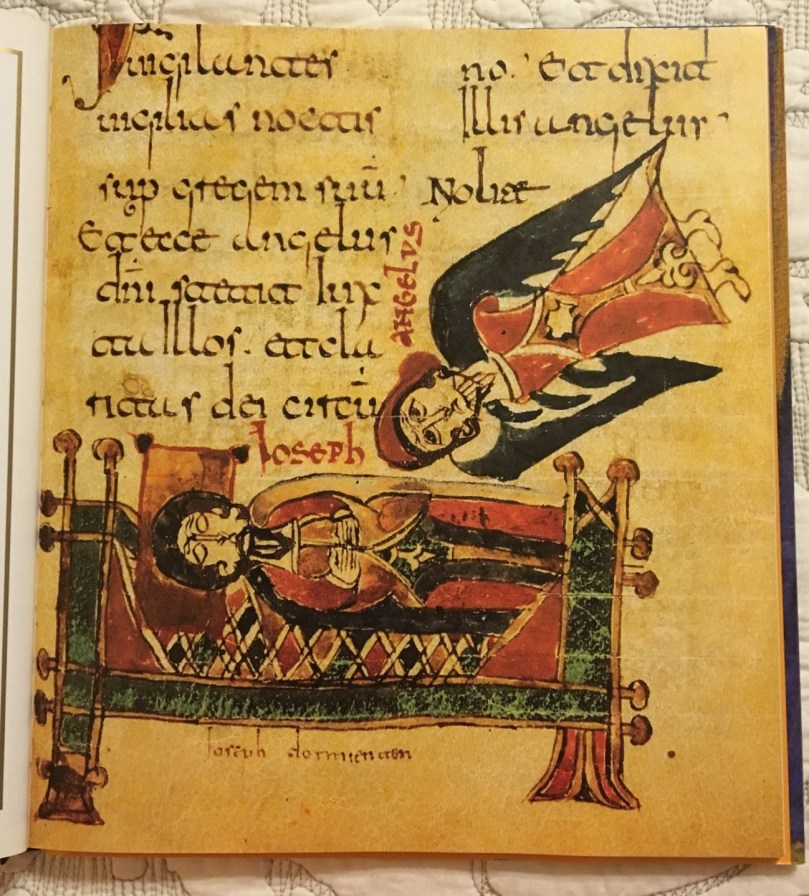 uigilantes
uigilias noctis
sup gregem suū.
Et ecce angelus
dn̄i stetit iux
ta Illos. et cla
ritas dei circū
no. Et dixit
Illis angelus
Nolite
ANGELVS
Ioseph
Ioseph dormienten